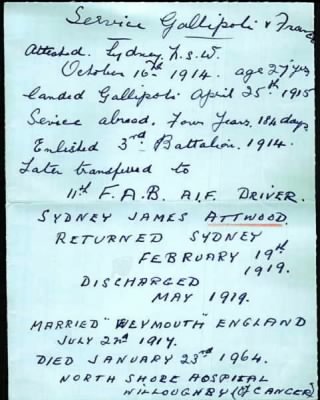 Service Gallipoli & France
Attested. Sydney N.S.W.
October 16th 1914. age 27 yrs
Landed Gallipoli April 25th 1915
Sevice abroad. Four Years. 184 days
Enlisted 3rd Battalion. 1914.
Later transferred to
11th F.A.B. A.I.F. DRIVER.
SYDNEY JAMES ATTWOOD.
RETURNED SYDNEY
FEBRUARY 19th
1919.
DISCHARGED
MAY 1919.
MARRIED "WEYMOUTH" ENGLAND
JULY 22nd 1917.
DIED JANUARY 23rd 1964.
NORTH SHORE HOSPITAL
WILLOUGHBY (OF CANCER)